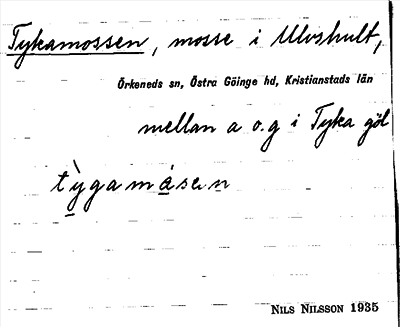 Tykamossen, mosse i Ulvshult,
Örkeneds sn, Östra Göinge hd, Kristianstads län
mellan a o. g i Tyka göl
tỳ̱gamá̱sen̲
NILS NILSSON 1935